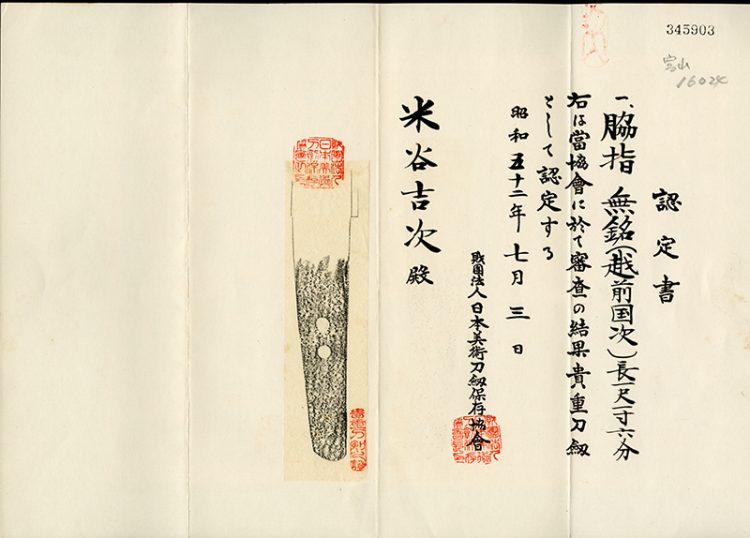 345903
富山
16024
認定書
一、脇指 無銘(越前国次)長一尺一寸六分
右は當協會に於て審査の結果貴重刀劔
として認定する
昭和五十二年七月三日
財團法人日本美術刀劔保存協會
米谷吉次殿